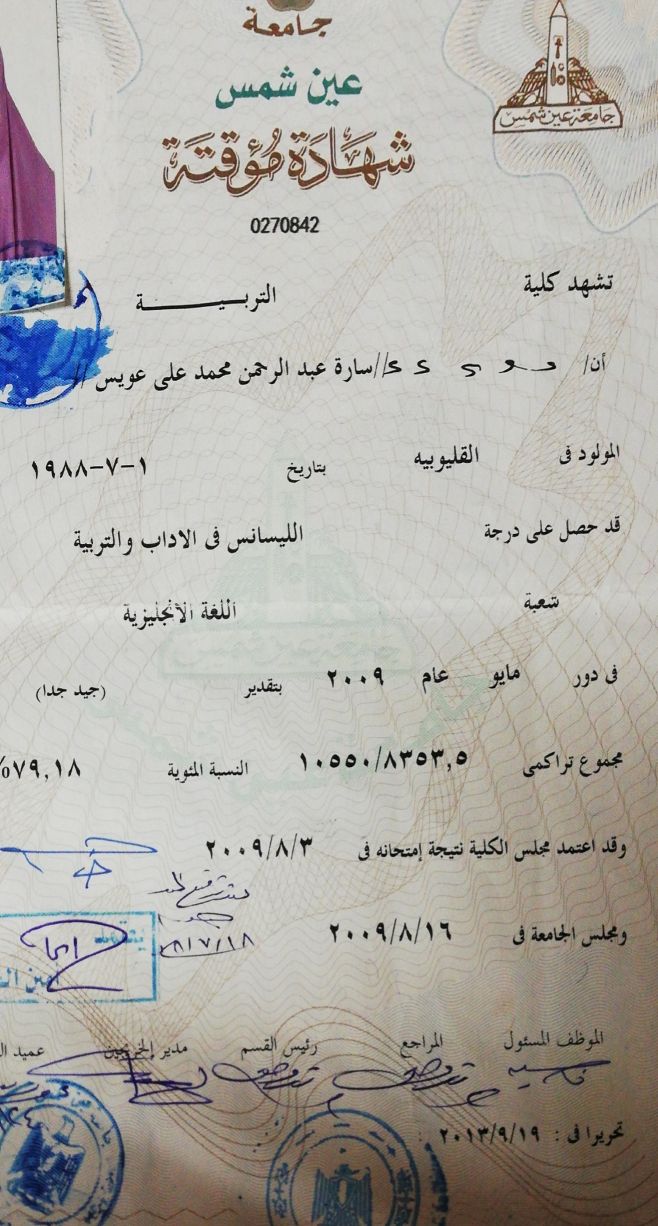 جامعة
عين شمس
جامعة عين شمس
شهادة مؤقتة
0270842
تشهد كلية التربيــــــــة
أن/ //سارة عبد الرحمن محمد على عويس //
المولود فى القليوبيه بتاريخ ١-٧-١٩٨٨
قد حصل على درجة الليسانس فى الاداب والتربية
شعبة اللغة الأنجليزية
فى دور مايو عام ٢٠٠٩ بتقدير (جيد جدا)
مجموع تراكمى ١٠٥٥٠/٨٣٥٣,٥ النسبة المئوية ٧٩,١٨%
وقد اعتمد مجلس الكلية نتيجة إمتحانه فى ٢٠٠٩/٨/٣
ومجلس الجامعة فى ٢٠٠٩/٨/١٦
يعتمد
الموظف المسئول المراجع رئيس القسم مدير الخريجين عميد
تحريرا فى : ٢٠١٣/٩/١٩